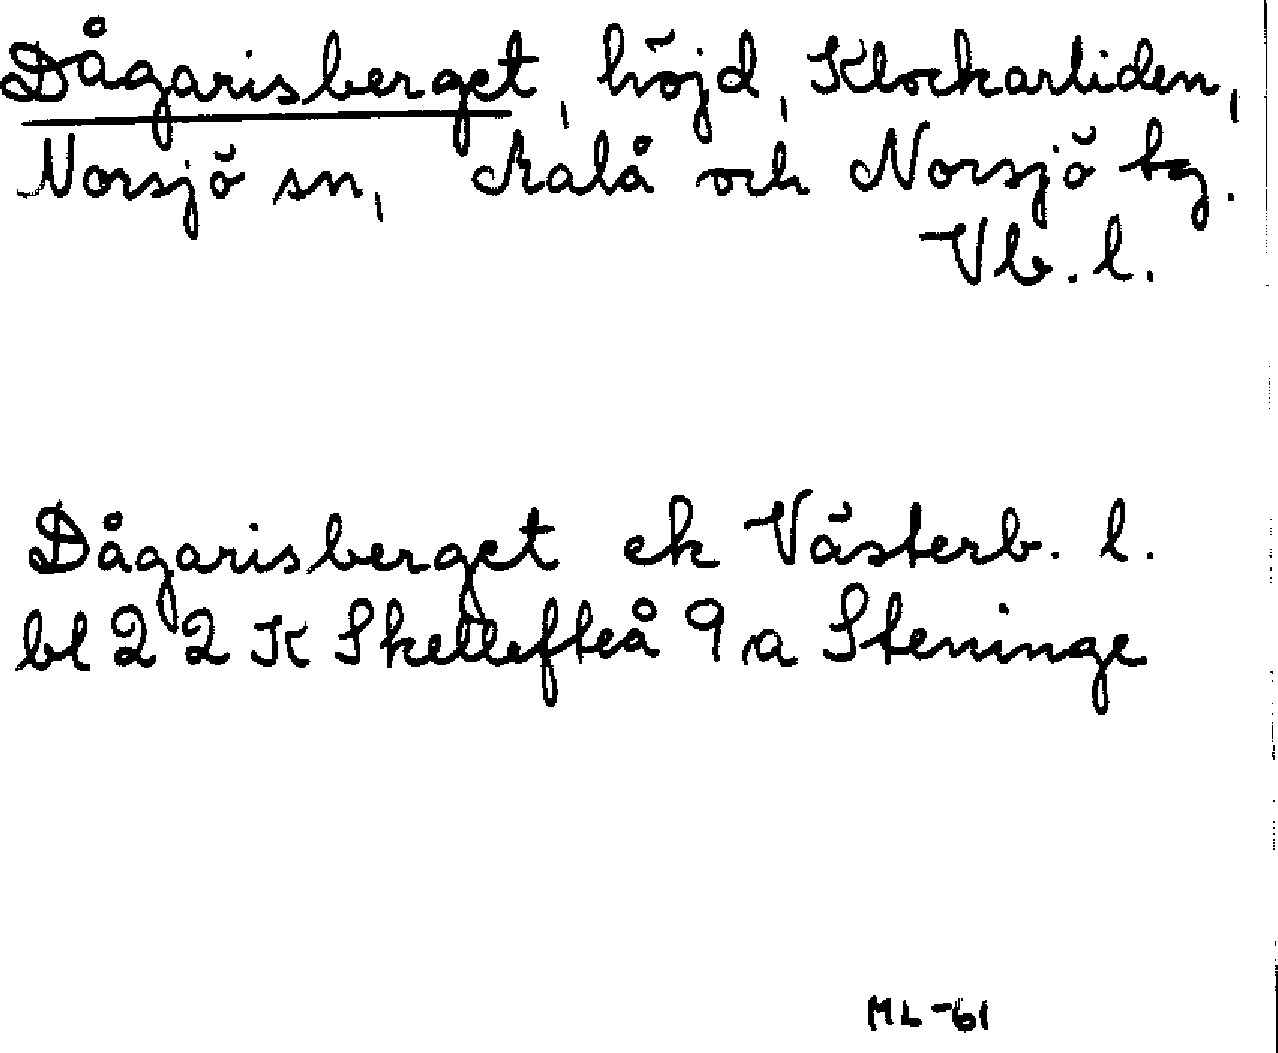 Dågarisberget, höjd, Klockarliden,
Norsjö sn, Malå och Norsjö tg.
Vb. l.
Dågarisberget ek Västerb. l.
bl 22 K Skellefteå 9 a Steninge
ML-61